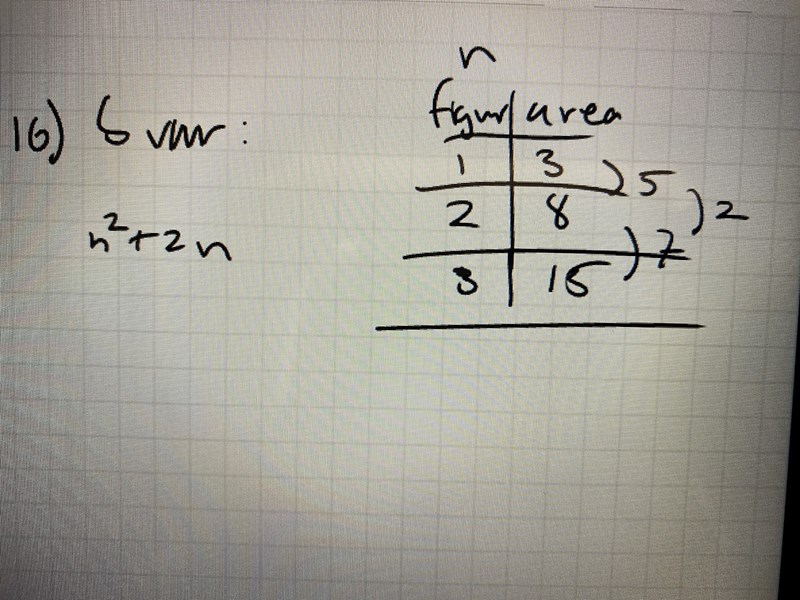 n
figur area
16) Svar:
1 3 ) 5
2 8 ) 2
n²+2n
) 7
3 15